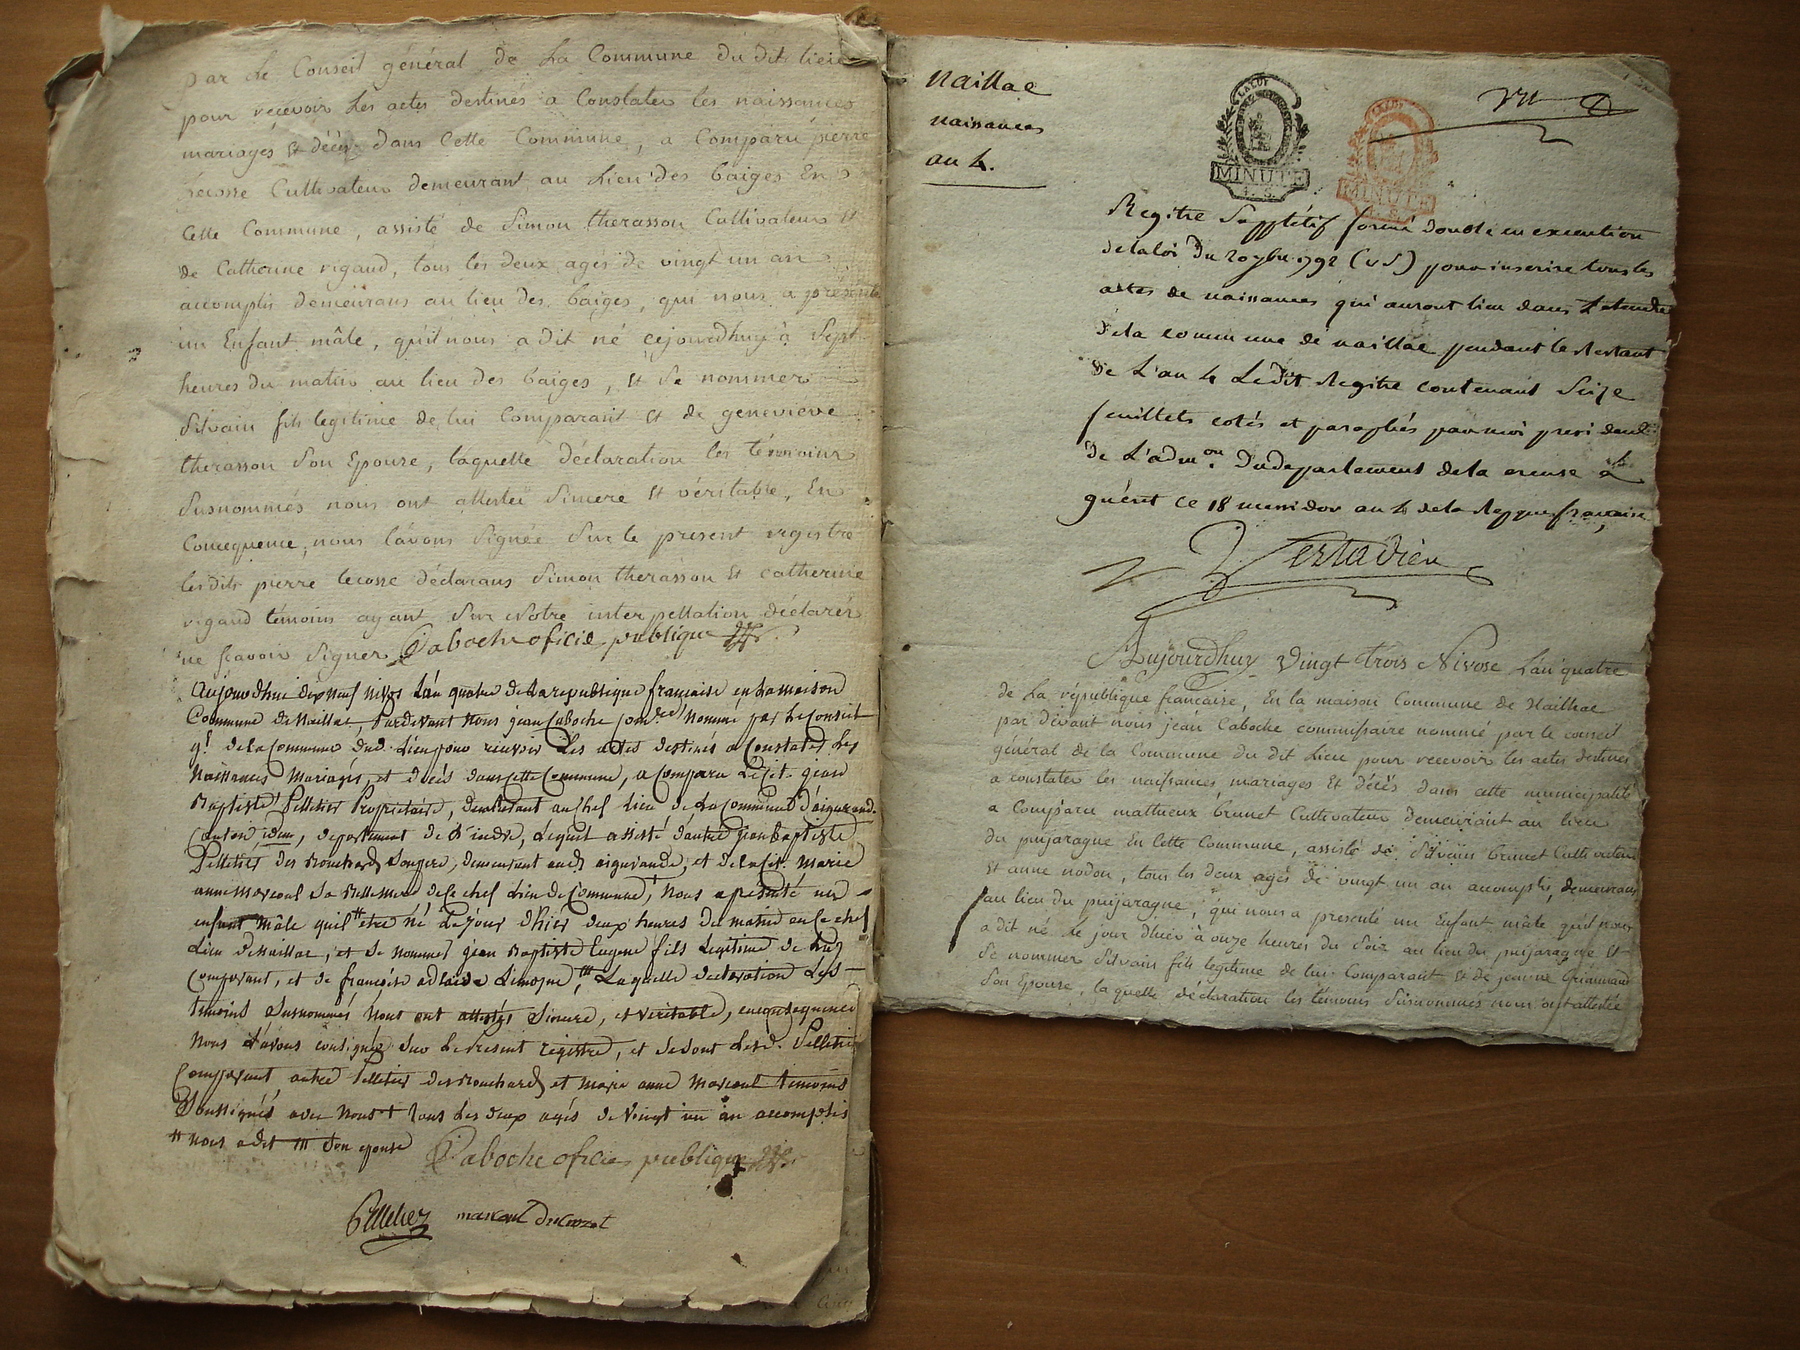 par Le Conseil général de La Commune du dit lieu
pour recevoir Les actes destinés a Constater les naissances
mariages Et décès dans Cette Commune, a Comparu pierre
Lecosse Cultivateur demeurant au Lieu des baiges En
Cette Commune, assisté de Simon therasson Cultivateur Et
de Catherine rigaud, tous les deux agés de vingt un an
accomplis demeurans au lieu des baiges, qui nous a présenté
un Enfant mâle, qu'il nous a dit né cejourdhuy à Sept
heures du matin au lieu des baiges, Et Se nommer
Silvain fils legitime de lui Comparant Et de geneviève
therasson Son Epouse, laquelle déclaration les témoins
Susnommés nous ont attestée Sincere Et véritable, En
Consequence, nous l'avons Signée Sur le present registre
lesdits pierre lecosse déclarans Simon therasson Et catherine
rigaud témoins ayant Sur Notre interpellation déclarés
ne Scavoir Signer Caboche oficié publique
Aujourdhui dixneuf nivos L'an quatre de La republique francaise en La maison
Commune de Naillac, Pardevant Nous jean Caboche Nommé par Le Conseil
gl de la Commune dud. Lieu pour recevoir Les actes destinés a Constater Les
Naissances Mariages, et décès dans Cette Commune, a Comparu Le Cit. jean
Baptiste Pelletier Propriétaire, demeurant au Chef Lieu de La Commune d'aigurande
Canton idem, departement de L'indre, Lequel assisté d'autre jean Baptiste
Pelletier des Bouchards, demeurant aud. aigurande, et de La Cit. Marie
anne Marcoul Sa Bellemere de ce chef Lieu de Commune, Nous a présenté un
enfant mâle quil # etre né Le jour d'hier deux heures du matin en Ce chef
Lieu de Naillac, et Se Nommer jean Baptiste Eugene fils Légitime de Luy
Comparant, et de françoise adelaide Limogne, ## Laquelle declaration Les
temoins Susnommés Nous ont attestés Sincere, et veritable, en consequence
Nous L'avons consignée Sur Le Present registre, et Se Sont Lesd. Pelletier
Comparant autre Pelletier des Bouchards et Marie anne Marcoul temoins
Soussignés avec Nous + tous Les deux agés de vingt un an accomplis
# nous a dit ## Son epouse Caboche oficié publique
Pelletier marcoul ducrozet
Naillac
naissances
an 4.
LA LOI
MINUTE
MINUTE
Registre Suppletif formé double en execution
de la loi du 20 7bre 1792 (v S) pour inscrire tous les
actes de naissances qui auront lieu dans L'etendue
de la commune de naillac pendant le Restant
de L'an 4 Ledit Registre contenant Seize
feuillets cotés et paraphés par moi president
de L'admon. du departement de la creuse à
guéret ce 18 messidor an 4 de la Repque francaise
Vertadier
Aujourdhuy vingt trois Nivose L'an quatre
de La république francaise, En la maison Commune de Naillac
par devant nous jean Caboche commissaire nommé par le conseil
général de la Commune du dit Lieu pour recevoir les actes destinés
a constater les naissances, mariages Et décès dans cette municipalité
a Comparu mathieux brunet Cultivateur demeurant au lieu
du puyjaragne En Cette Commune, assisté de Silvain brunet Cultivateur
Et anne nodon, tous les deux agés de vingt un an accomplis, demeurans
au lieu du puyjaragne, qui nous a presenté un Enfant mâle qu'il nous
a dit né le jour d'hier à onze heures du Soir au lieu du puyjaragne Et
Se nommer Silvain fils legitime de lui Comparant Et de jeanne Grimaud
Son Epouse, laquelle déclaration les témoins Susnommés nous ont attestée